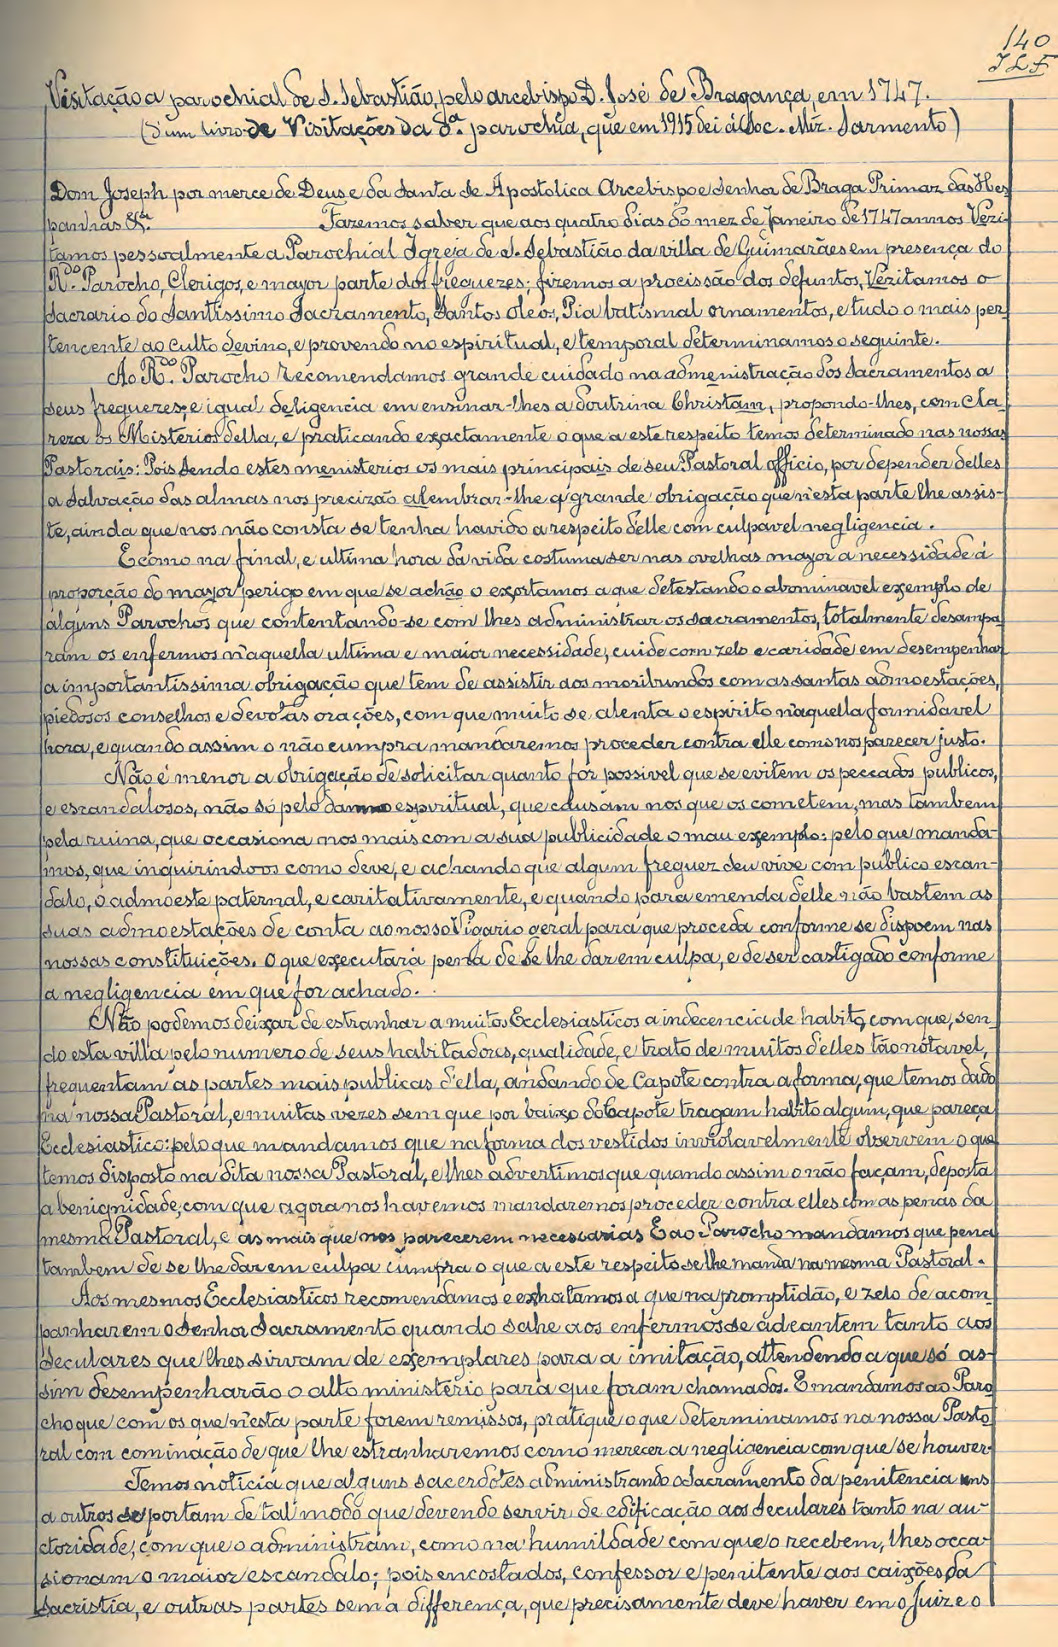 140
J L F
Visitação a parochial de S. Sebastião, pelo arcebispo D. José de Bragança, em 1747.
(D'um livro de Visitações da d.ª parochia, que em 1915 dei á Soc. Mz. Sarmento)
Dom Joseph por merce de Deus e da Santa Se Apostolica Arcebispo e Senhor de Braga Primaz das Hes-
panhas &.ª Fazemos saber que aos quatro dias do mez de Janeiro de 1747 annos Vezi-
tamos pessoalmente a Parochial Igreja de S. Sebastião da villa de Guimarães em presença do
R.do Parocho, Clerigos, e mayor parte dos freguezes; fizemos a procissão dos defuntos, Vezitamos o
Sacrario do Santissimo Sacramento, Santos Oleos, Pia batismal ornamentos, e tudo o mais per-
tencente ao culto devino, e provendo no espiritual, e temporal determinamos o seguinte.
Ao R.do Parocho recomendamos grande cuidado na admenistração dos Sacramentos a
seus freguezes; e igual deligencia em ensinar-lhes a doutrina Christam, propondo-lhes, com cla-
reza os Misterios della, e praticando exactamente o que a este respeito temos determinado nas nossas
Pastorais: Pois sendo estes menisterios os mais principais de seu Pastoral officio, por depender delles
a salvação das almas nos precizão alembrar-lhe q' grande obrigação que n'esta parte lhe assis-
te, ainda que nos não consta se tenha havido a respeito delle com culpavel negligencia.
E como na final, e ultima hora da vida costuma ser nas ovelhas mayor a necessidade á
proporção do mayor perigo em que se achão o exortamos a que detestando o abominavel exemplo de
alguns Parochos que contentando-se com lhes administrar os sacramentos, totalmente desampa-
ram os enfermos n'aquella ultima e maior necessidade, cuide com zelo e caridade em desempenhar
a importantissima obrigação que tem de assistir aos moribundos com as santas admoestações,
piedosos conselhos e devotas orações, com que muito se alenta o espirito n'aquella formidavel
hora, e quando assim o não cumpra mandaremos proceder contra elle como nos parecer justo.
Não é menor a obrigação de solicitar quanto for possivel que se evitem os peccados publicos,
e escandalosos, não só pelo damno espiritual, que causam nos que os cometem, mas tambem
pela ruina, que occasiona nos mais com a sua publicidade o mau exemplo: pelo que manda-
mos, que inquirindo-os como deve, e achando que algum freguez seu vive com publico escan-
dalo, o admoeste paternal, e caritativamente, e quando para emenda delle não bastem as
suas admoestações de conta ao nosso Vigario geral para que proceda conforme se dispoem nas
nossas constituições. O que executará pena de se lhe dar em culpa, e de ser castigado conforme
a negligencia em que for achado.
Não podemos deixar de estranhar a muitos Ecclesiasticos a indecencia de habito, com que, sen-
do esta villa pelo numero de seus habitadores, qualidade, e trato de muitos d'elles tão notavel,
frequentam as partes mais publicas d'ella, andando de Capote contra a forma, que temos dado
na nossa Pastoral, e muitas vezes sem que por baixo do Capote tragam habito algum, que pareça
Ecclesiastico: pelo que mandamos que na forma dos vestidos inviolavelmente observem o que
temos disposto na dita nossa Pastoral, e lhes advertimos que quando assim o não façam, deposta
a benignidade, com que agora nos havemos mandaremos proceder contra elles com as penas da
mesma Pastoral, e as mais que nos parecerem necessarias E ao Parocho mandamos que pena
tambem de se lhe dar em culpa cumpra o que a este respeito se lhe manda na mesma Pastoral.
Aos mesmos Ecclesiasticos recomendamos e exhortamos a que na promptidão, e zelo de acom-
panharem o Senhor Sacramento quando sahe aos enfermos se adeantem tanto aos
Seculares que lhes sirvam de exemplares para a imitação, attendendo a que só as-
sim desempenharão o alto ministerio para que foram chamados. E mandamos ao Paro-
cho que com os que n'esta parte forem remissos, pratique o que determinamos na nossa Pasto-
ral com cominação de que lhe estranharemos como merecer a negligencia com que se houver
Temos noticia que alguns sacerdotes administrando o Sacramento da penitencia uns
a outros se portam de tal modo que devendo servir de edificação aos Seculares tanto na au-
ctoridade, com que o administram, como na humildade com que o recebem, lhes occa-
sionam o maior escandalo; pois encostados, confessor e penitente aos caixões da
Sacristia, e outras partes sem a differença, que precisamente deve haver em o Juiz e o